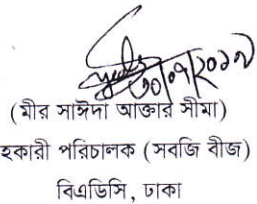 ৩০/০৭/২০১৭
(মীর সাঈদা আক্তার সীমা)
হকারী পরিচালক (সবজি বীজ)
বিএডিসি, ঢাকা